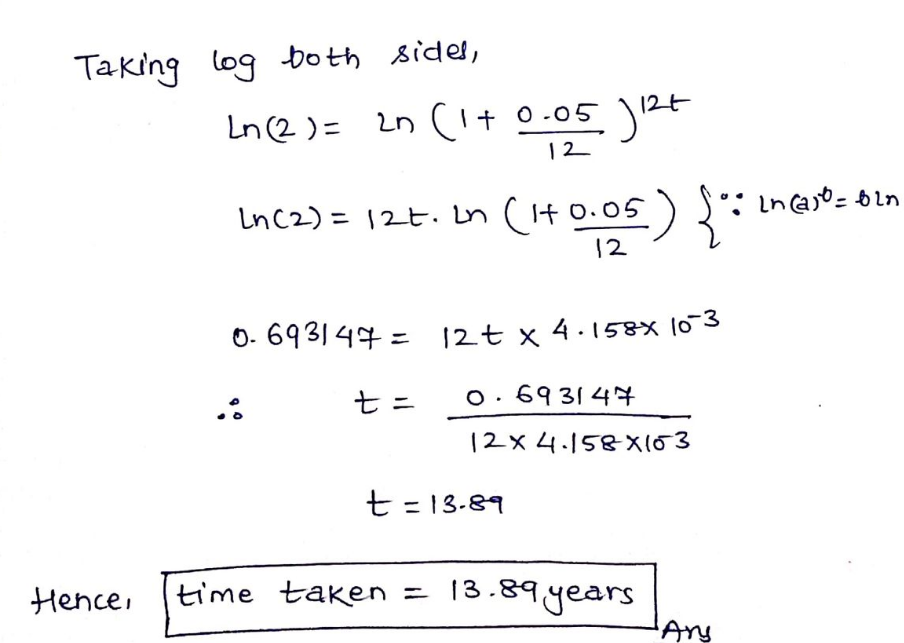 Taking log both sides,
Ln(2) = Ln (1 + 0.05/12)^12t
Ln(2) = 12t. Ln (1+ 0.05/12) {∵ Ln(a)^b = bln
0.693147 = 12t × 4.158× 10^-3
∴ t = 0.693147 / 12 × 4.158 ×10^-3
t = 13.89
Hence, time taken = 13.89 years Ans